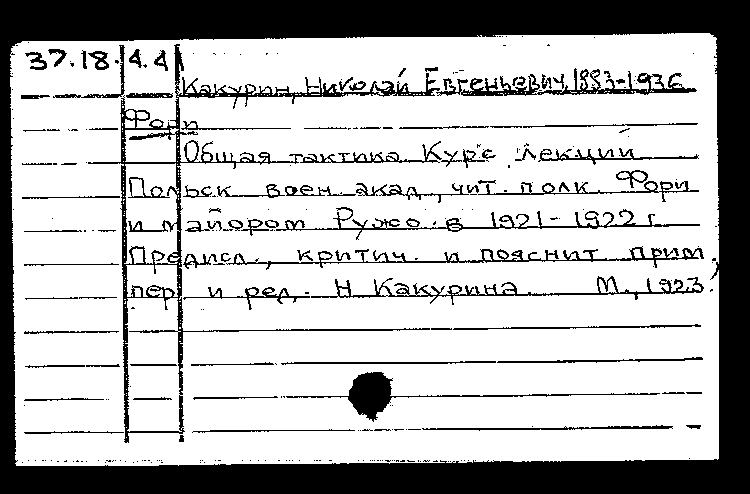 37.18.4.4
Какурин, Николай Евгеньевич, 1883-1936
Фори
Общая тактика Курс лекций
Польск воен. акад, чит. полк. Фори
и майором Ружо. в 1921-1922 г.
Предисл., критич. и пояснит прим.,
пер и ред. Н Какурина. М., 1923.